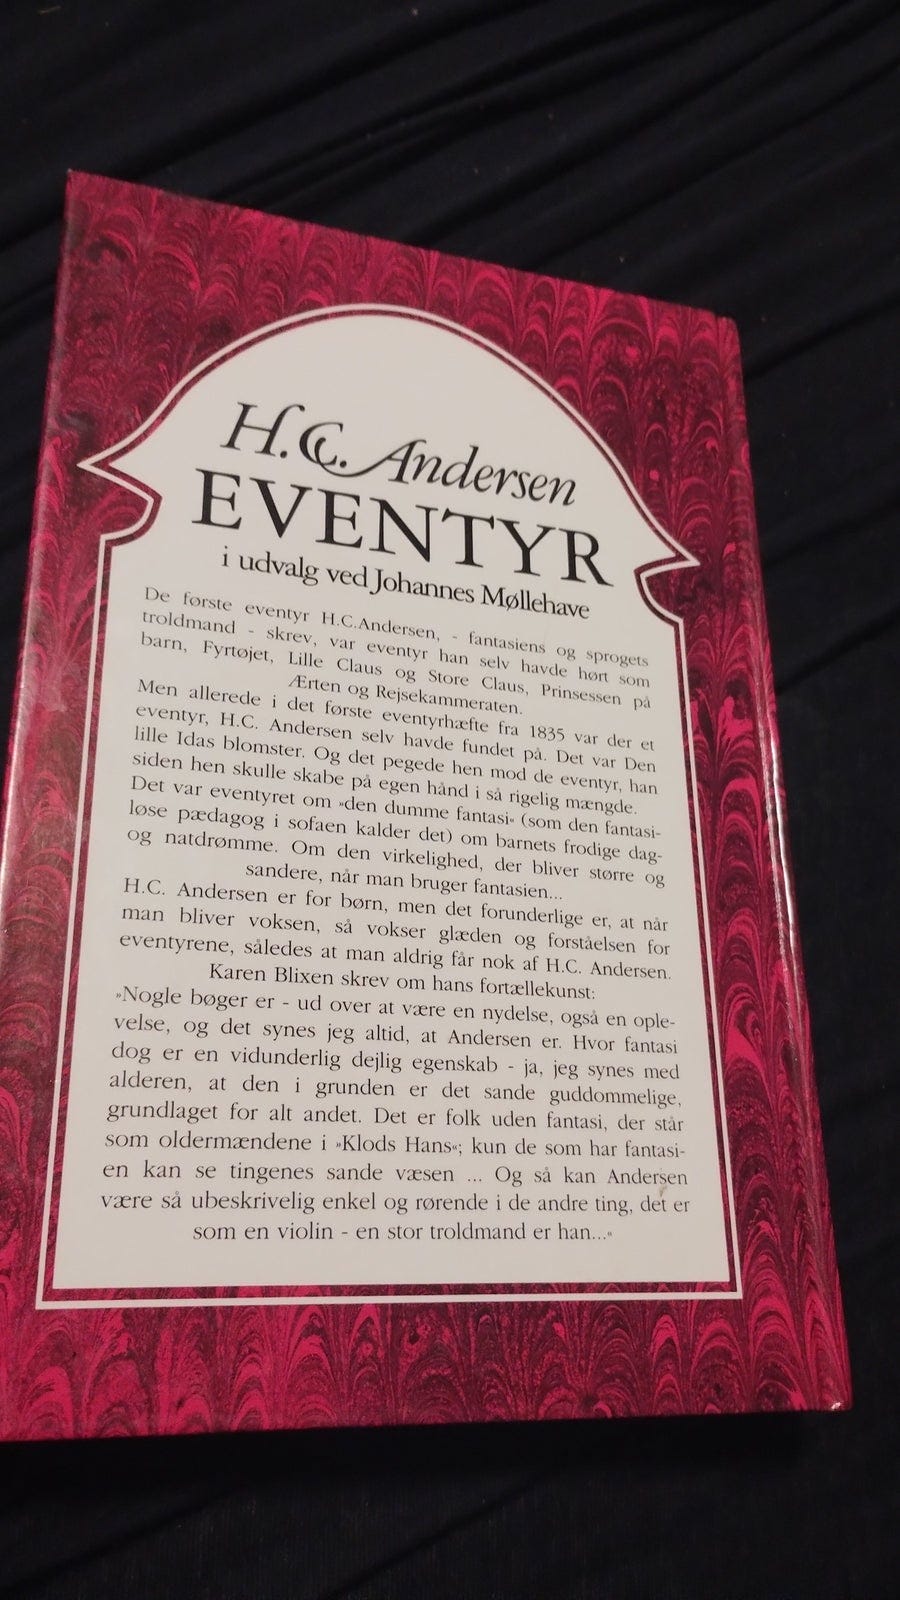 H.C. Andersen
EVENTYR
i udvalg ved Johannes Møllehave
De første eventyr H.C.Andersen, - fantasiens og sprogets
troldmand - skrev, var eventyr han selv havde hørt som
barn, Fyrtøjet, Lille Claus og Store Claus, Prinsessen på
Ærten og Rejsekammeraten.
Men allerede i det første eventyrhæfte fra 1835 var der et
eventyr, H.C. Andersen selv havde fundet på. Det var Den
lille Idas blomster. Og det pegede hen mod de eventyr, han
siden hen skulle skabe på egen hånd i så rigelig mængde.
Det var eventyret om »den dumme fantasi« (som den fantasi-
løse pædagog i sofaen kalder det) om barnets frodige dag-
og natdrømme. Om den virkelighed, der bliver større og
sandere, når man bruger fantasien...
H.C. Andersen er for børn, men det forunderlige er, at når
man bliver voksen, så vokser glæden og forståelsen for
eventyrene, således at man aldrig får nok af H.C. Andersen.
Karen Blixen skrev om hans fortællekunst:
»Nogle bøger er - ud over at være en nydelse, også en ople-
velse, og det synes jeg altid, at Andersen er. Hvor fantasi
dog er en vidunderlig dejlig egenskab - ja, jeg synes med
alderen, at den i grunden er det sande guddommelige,
grundlaget for alt andet. Det er folk uden fantasi, der står
som oldermændene i »Klods Hans«; kun de som har fantasi-
en kan se tingenes sande væsen ... Og så kan Andersen
være så ubeskrivelig enkel og rørende i de andre ting, det er
som en violin - en stor troldmand er han...«